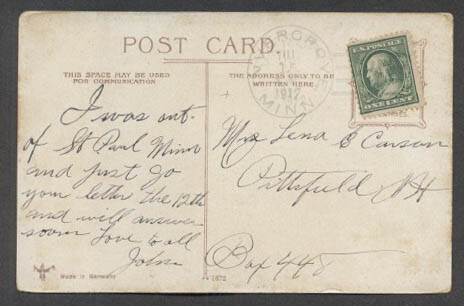 POST CARD.
THIS SPACE MAY BE USED
FOR COMMUNICATION
THE ADDRESS ONLY TO BE
WRITTEN HERE
GROVE
1912
MINN
U.S. POSTAGE
ONE CENT
I was out
of St Paul Minn
and just go
your letter the 12th
and will answer
soon Love to all
John
Mrs Lena E Carson
Pittsfield NH
Box 448
Made in Germany
1672